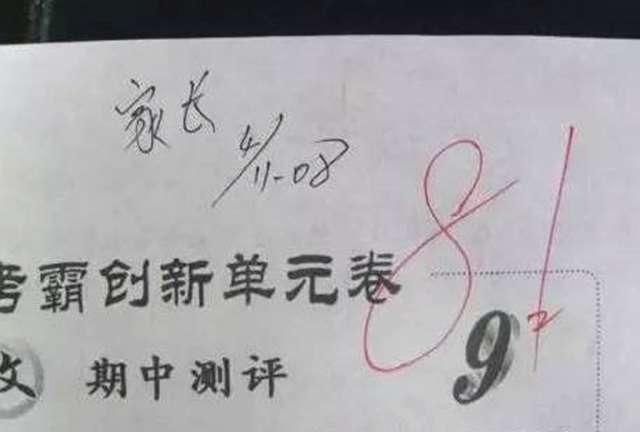 家长
4/11-08
81
考霸创新单元卷
9
期中测评